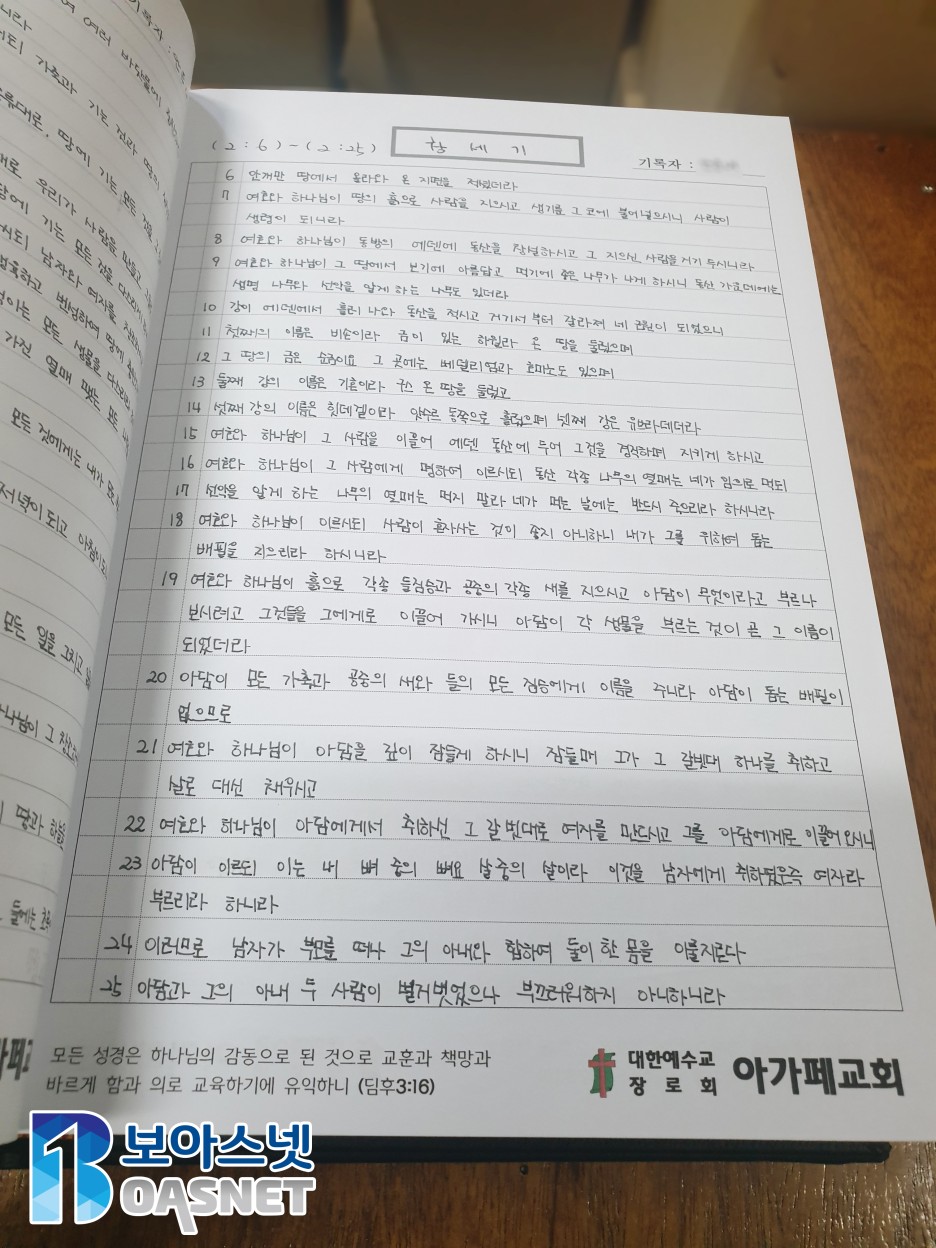 (2:6)-(2:25)
창 세 기
기록자 :
6 안개만 땅에서 올라와 온 지면을 적셨더라
7 여호와 하나님이 땅의 흙으로 사람을 지으시고 생기를 그 코에 불어넣으시니 사람이
생령이 되니라
8 여호와 하나님이 동방의 에덴에 동산을 창설하시고 그 지으신 사람을 거기 두시니라
9 여호와 하나님이 그 땅에서 보기에 아름답고 먹기에 좋은 나무가 나게 하시니 동산 가운데에는
생명 나무와 선악을 알게 하는 나무도 있더라
10 강이 에덴에서 흘러 나와 동산을 적시고 거기서부터 갈라져 네 근원이 되었으니
11 첫째의 이름은 비손이라 금이 있는 하윌라 온 땅을 둘렀으며
12 그 땅의 금은 순금이요 그 곳에는 베델리엄과 호마노도 있으며
13 둘째 강의 이름은 기혼이라 구스 온 땅을 둘렀고
14 셋째 강의 이름은 힛데겔이라 앗수르 동쪽으로 흘렀으며 넷째 강은 유브라데더라
15 여호와 하나님이 그 사람을 이끌어 에덴 동산에 두어 그것을 경작하며 지키게 하시고
16 여호와 하나님이 그 사람에게 명하여 이르시되 동산 각종 나무의 열매는 네가 임의로 먹되
17 선악을 알게 하는 나무의 열매는 먹지 말라 네가 먹는 날에는 반드시 죽으리라 하시니라
18 여호와 하나님이 이르시되 사람이 혼자사는 것이 좋지 아니하니 내가 그를 위하여 돕는
배필을 지으리라 하시니라
19 여호와 하나님이 흙으로 각종 들짐승과 공중의 각종 새를 지으시고 아담이 무엇이라고 부르나
보시려고 그것들을 그에게로 이끌어 가시니 아담이 각 생물을 부르는 것이 곧 그 이름이
되었더라
20 아담이 모든 가축과 공중의 새와 들의 모든 짐승에게 이름을 주니라 아담이 돕는 배필이
없으므로
21 여호와 하나님이 아담을 깊이 잠들게 하시니 잠들매 그가 그 갈빗대 하나를 취하고
살로 대신 채우시고
22 여호와 하나님이 아담에게서 취하신 그 갈빗대로 여자를 만드시고 그를 아담에게로 이끌어 오시니
23 아담이 이르되 이는 내 뼈 중의 뼈요 살 중의 살이라 이것을 남자에게 취하였은즉 여자라
부르리라 하니라
24 이러므로 남자가 부모를 떠나 그의 아내와 합하여 둘이 한 몸을 이룰지로다
25 아담과 그의 아내 두 사람이 벌거벗었으나 부끄러워하지 아니하니라
모든 성경은 하나님의 감동으로 된 것으로 교훈과 책망과
바르게 함과 의로 교육하기에 유익하니 (딤후3:16)
대한예수교
장 로 회
아가페교회
보아스넷
BOASNET